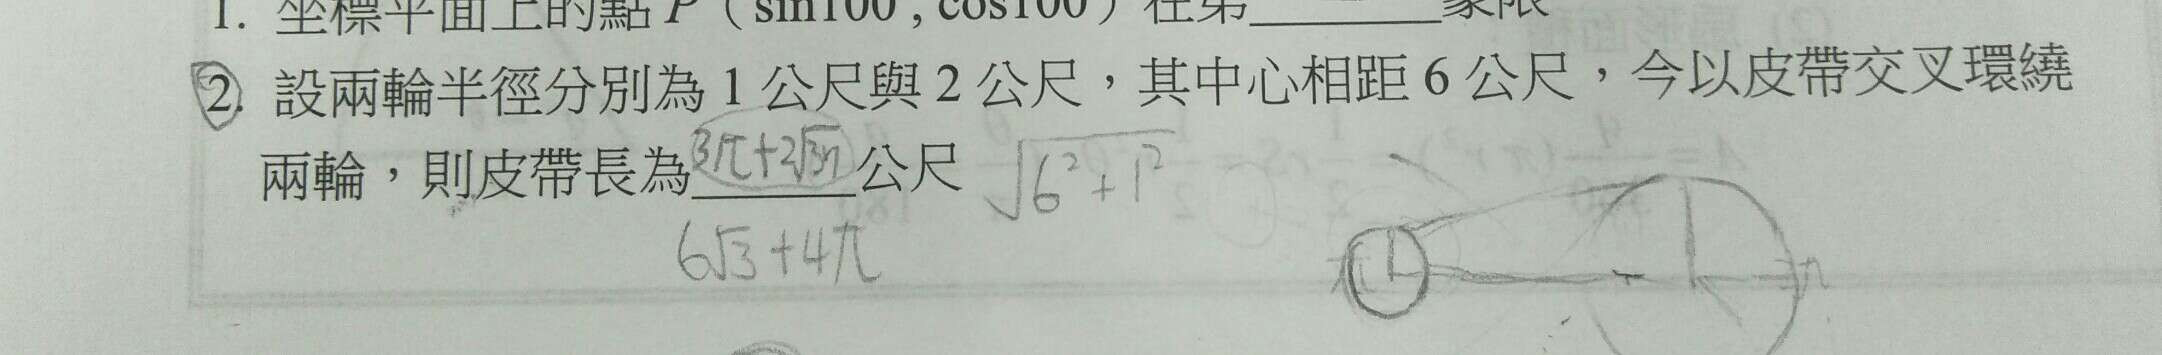 1. 坐標平面上的點 P（sin100°, cos100°）在第______象限
2. 設兩輪半徑分別為 1 公尺與 2 公尺，其中心相距 6 公尺，今以皮帶交叉環繞
兩輪，則皮帶長為 3π+2√37 公尺 √6²+1²
6√3+4π